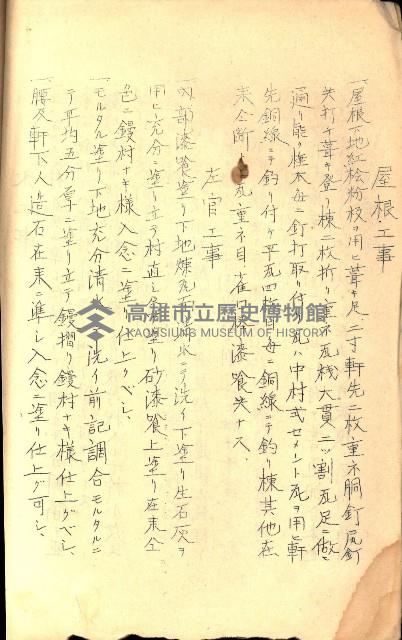 屋根工事
一、屋根下地紅桧粉枚ヲ用ヒ葺キ足二寸軒先二枚重ネ胴釘尻釘
失打チ葺キ登リ棟二枚折リ重ネ瓦棧大貫二ッ割瓦足ニ做ヒ
通リ能ク極木毎ニ釘打取リ付瓦ハ中村式セメント瓦ヲ用ヒ軒
先銅線ニテ釣リ付ケ平瓦四枚目毎ニ銅線ニテ釣リ棟其他在
来仝断 瓦重ネ目雀口漆喰失ナス
左官工事
一、内部漆喰塗リ下地煉瓦 水ニテ洗イ下塗リ生石灰ヲ
用ヒ充分ニ塗リ立テ村直シ 塗リ砂漆喰上塗リ在来仝
色ニ鏝村ナキ様入念ニ塗リ仕上クベシ
一、モルタル塗リ下地充分清水 洗イ前記調合モルタルニ
テ平均五分厚ニ塗リ立テ鏝摺リ鏝村ナキ様仕上グベシ
一、腰及軒下人造石在来ニ準シ入念ニ塗リ仕上グ可シ
高雄市立歷史博物館
KAOHSIUNG MUSEUM OF HISTORY